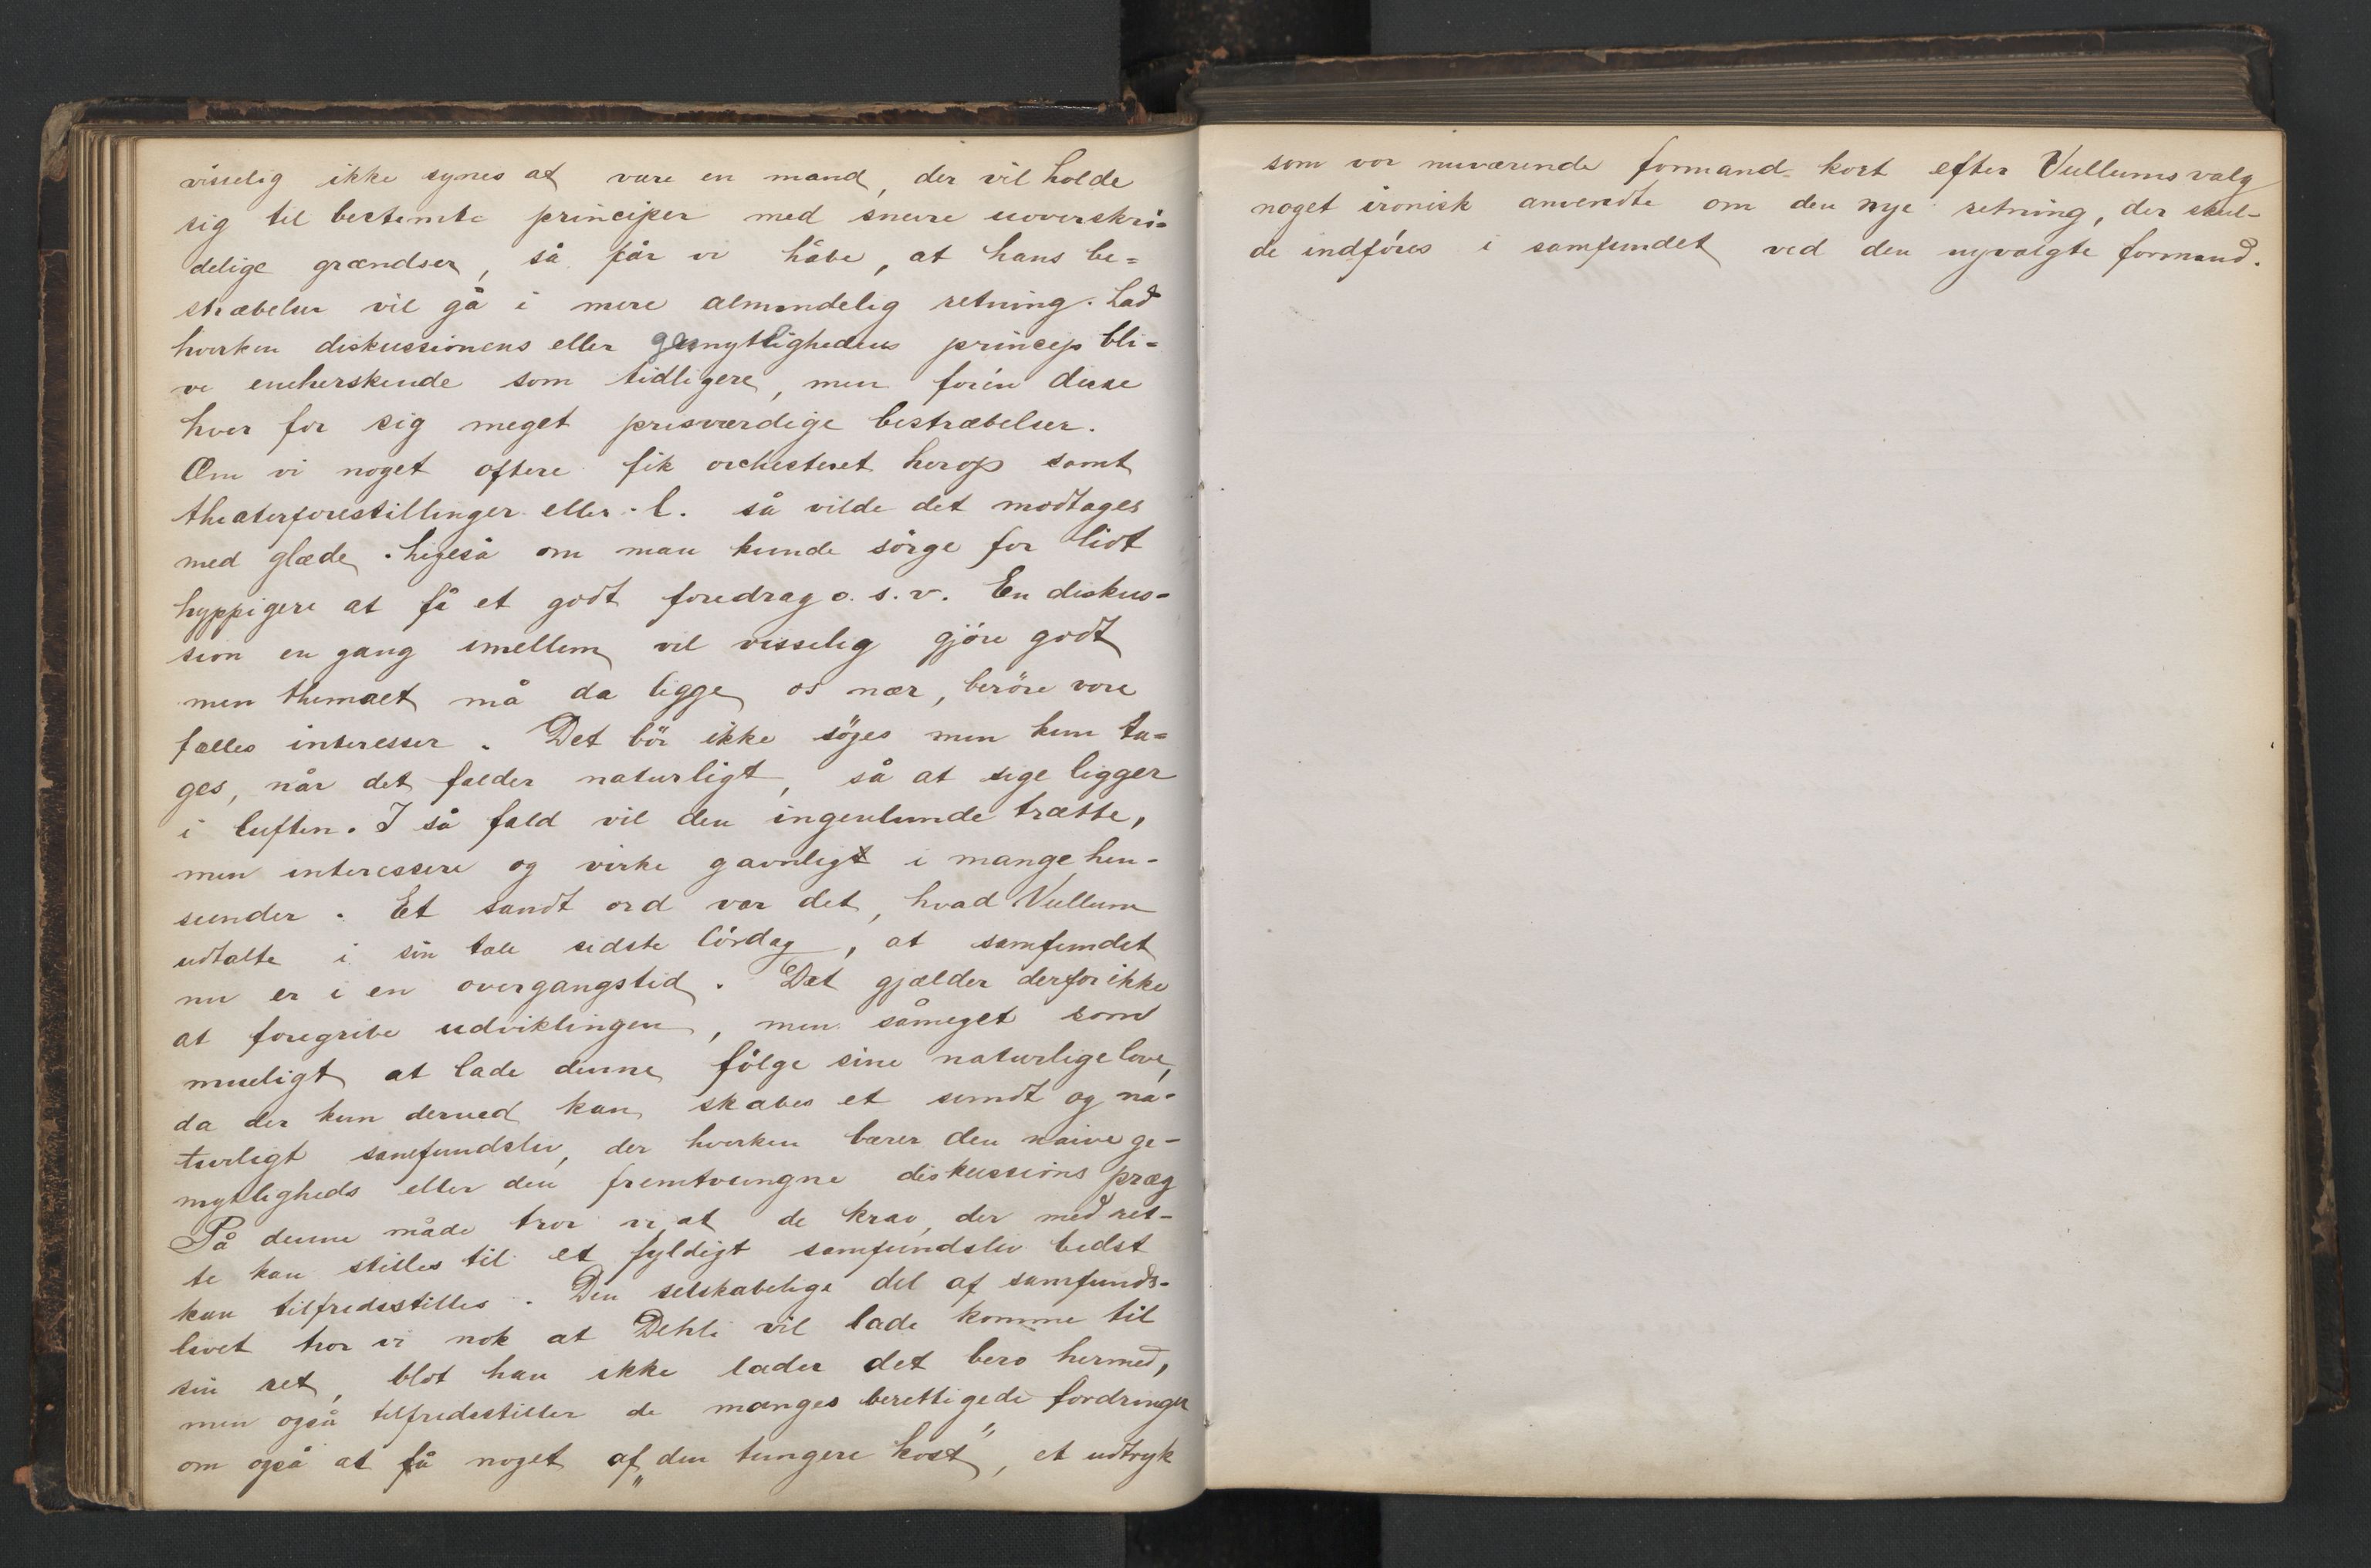 visselig ikke synes at være en mand, der vil holde
sig til bestemte principer med snevre uoverskri-
delige grændser, så får vi håbe, at hans be-
stræbelser vil gå i mere almindelig retning. Lad
hverken diskussionens eller gemytlighedens princip bli-
ve eneherskende som tidligere, men forén disse
hver for sig meget prisværdige bestræbelser.
Om vi noget oftere fik orchesteret herop samt
theaterforestillinger eller l. så vilde det modtages
med glæde. Ligeså om man kunde sörge for lidt
hyppigere at få et godt foredrag o. s. v. En diskus-
sion en gang imellem vil visselig gjöre godt
men themaet må da ligge os nær, beröre vore
fælles interesser. Det bör ikke söges men kun ta-
ges, når det falder naturligt, så at sige ligger
i luften. I så fald vil den ingenlunde trætte,
men interessere og virke gavnligt i mange hen-
seender. Et sandt ord var det, hvad Vullum
udtalte i sin tale sidste lördag, at samfundet
nu er i en overgangstid. Det gjælder derfor ikke
at foregribe udviklingen, men såmeget som
mueligt at lade denne fölge sine naturlige love,
da der kun derved kan skabes et sundt og na-
turligt samfundsliv, der hverken bærer den naive ge-
mytligheds eller den fremtvungne diskussions præg
På denne måde tror vi at de krav, der med ret-
te kan stilles til et fyldigt samfundsliv bedst
kan tilfredsstilles. Den selskabelige del af samfunds-
livet tror vi nok at Dehli vil lade komme til
sin ret, blot han ikke lader det bero hermed,
men også tilfredsstiller de manges berettigede fordringer
om også at få noget af „den tungere kost", et udtryk
som vor nuværende formand kort efter Vullums valg
noget ironisk anvendte om den nye retning, der skul-
de indföres i samfundet ved den nyvalgte formand.